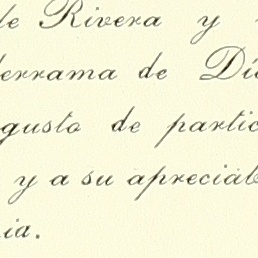 de Rivera y
derrama de Dí
gusto de partic
y a su apreciab
ia.